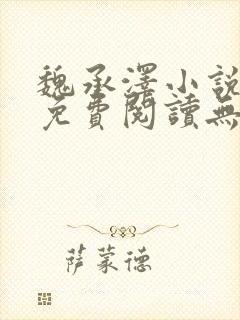 魏承澤小說
免費閱讀無
萨蒙德